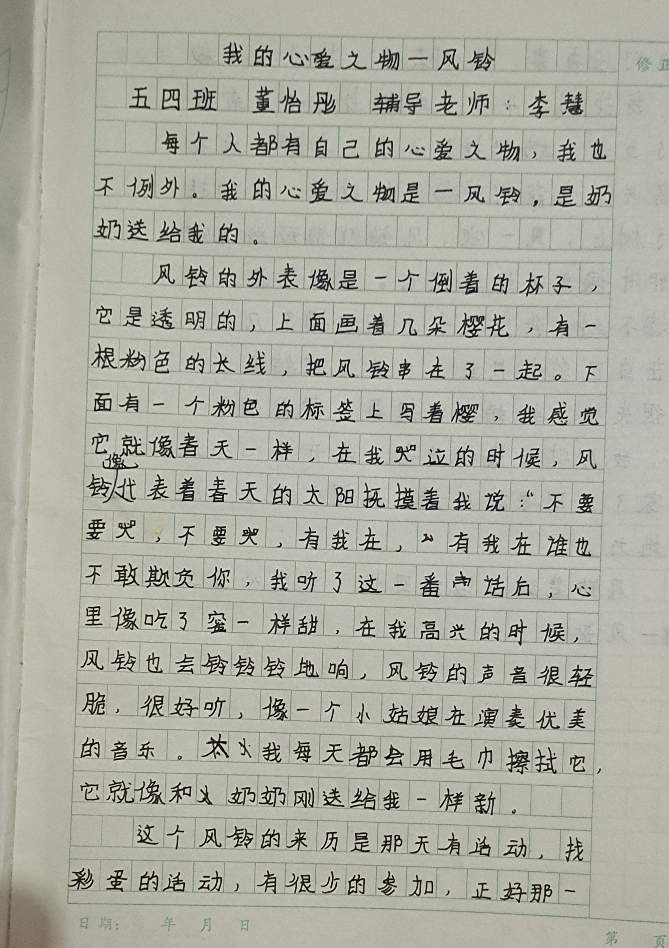 我的心爱之物一风铃
五四班 董怡彤 辅导老师：李慧
每个人都有自己的心爱之物，我也
不例外。我的心爱之物是一风铃，是奶
奶送给我的。
风铃的外表像是一个倒着的杯子，
它是透明的，上面画着几朵樱花，有一
根粉色的长线，把风铃串在了一起。下
面有一个粉色的标签上写着樱，我感觉
它就像春天一样，在我哭泣的时候，风
铃像代表着春天的太阳抚摸着我说：“不要
要哭，不要哭，有我在，”有我在谁也
不敢欺负你，我听了这一番话后，心
里像吃了蜜一样甜，在我高兴的时候，
风铃也会铃铃铃地响，风铃的声音很轻
脆，很好听，像一个小姑娘在演奏优美
的音乐。我每天都会用毛巾擦拭它，
它就像和奶奶刚送给我一样新。
这个风铃的来历是那天有活动，找
彩蛋的活动，有很少的参加，正好那一
日期： 年 月 日
第 页
修正